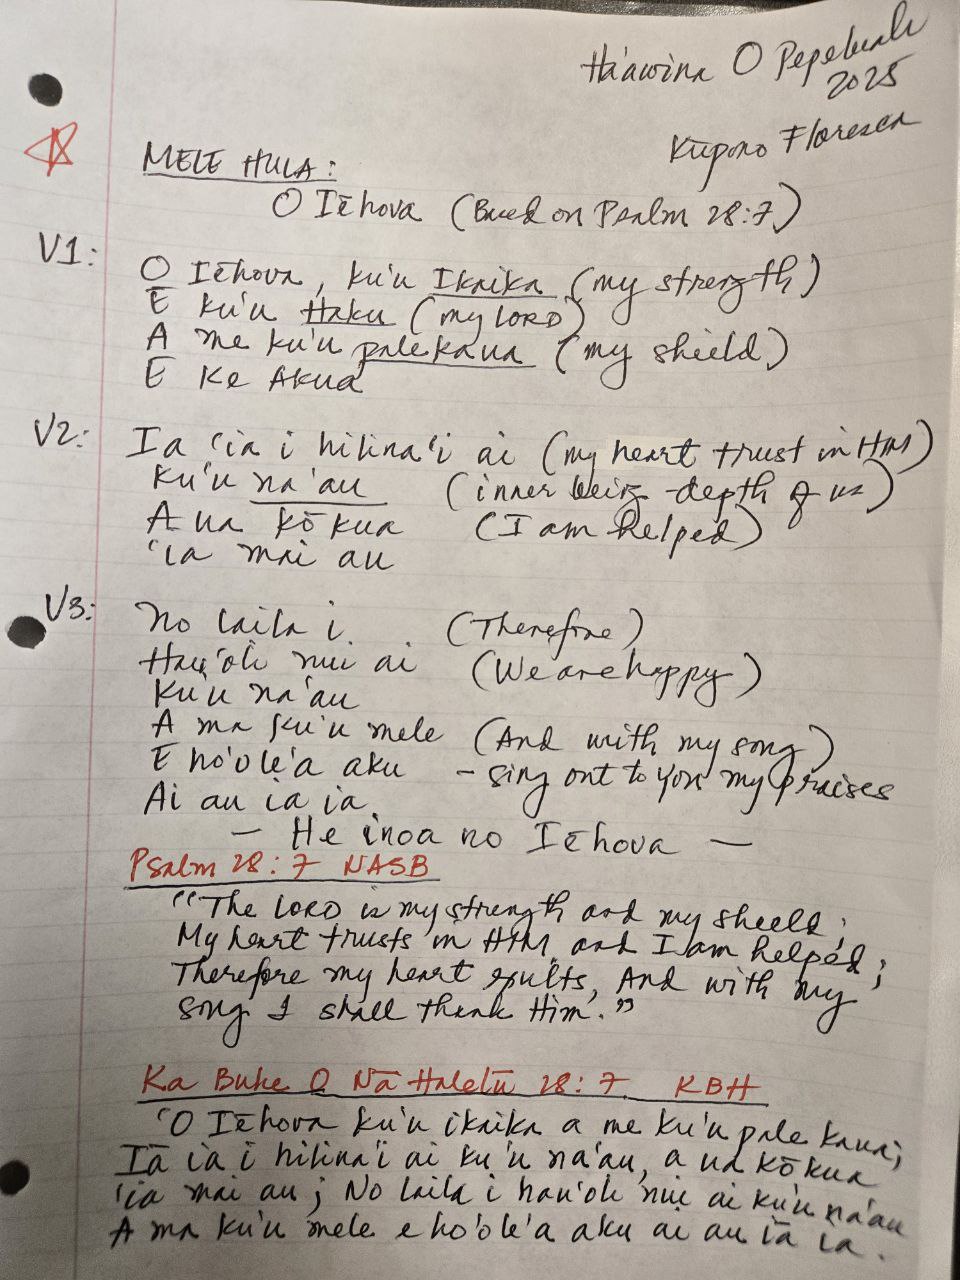 Ha'awina O Pepeluali
2025
Kūpono Floresca
MELE HULA:
O Iēhova (Based on Psalm 28:7)
V1:
O Iēhova, ku'u Ikaika (my strength)
E ku'u Haku (my LORD)
A me ku'u pale kaua (my shield)
E Ke Akua
V2:
Ia 'ia i hilina'i ai (my heart trust in HIM)
Ku'u na'au (inner being - depth of us)
A ua kōkua (I am helped)
'ia mai au
V3:
No laila i (Therefore)
Hau'oli nui ai (We are happy)
Ku'u na'au
A ma ku'u mele (And with my song)
E ho'ole'a aku - sing out to You my praises
Ai au ia ia
— He inoa no Iēhova —
Psalm 28:7 NASB
"The LORD is my strength and my shield;
My heart trusts in HIM, and I am helped;
Therefore my heart exults, And with my
song I shall thank Him."
Ka Buke O Nā Halelū 28:7 KBH
'O Iēhova ku'u ikaika a me ku'u pale kaua;
Iā ia i hilina'i ai ku'u na'au, a ua kōkua
'ia mai au; No laila i hau'oli nui ai ku'u na'au
A ma ku'u mele e ho'ole'a aku ai au iā ia.